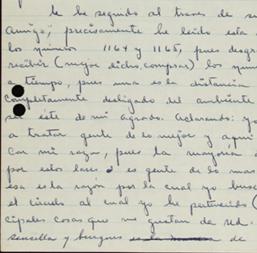 le he seguido al traves de su
Amiga", precisamente he leido esta
los numeros 1164 y 1165, pues desgra
recibir (mejor dicho, comprar) los num
a tiempo, pues una es la distancia
completamente desligado del ambiente
son este de mi agrado. Aclarando: yo
a tratar gente de lo mejor y aqui
con mi razon, pues la mayoria
por estos lares es gente de lo mas
esa es la razon por la cual yo busc
el circulo al cual yo he pertenecido (
cipales cosas que me gustan de Ud.
sencilla y burguesa de